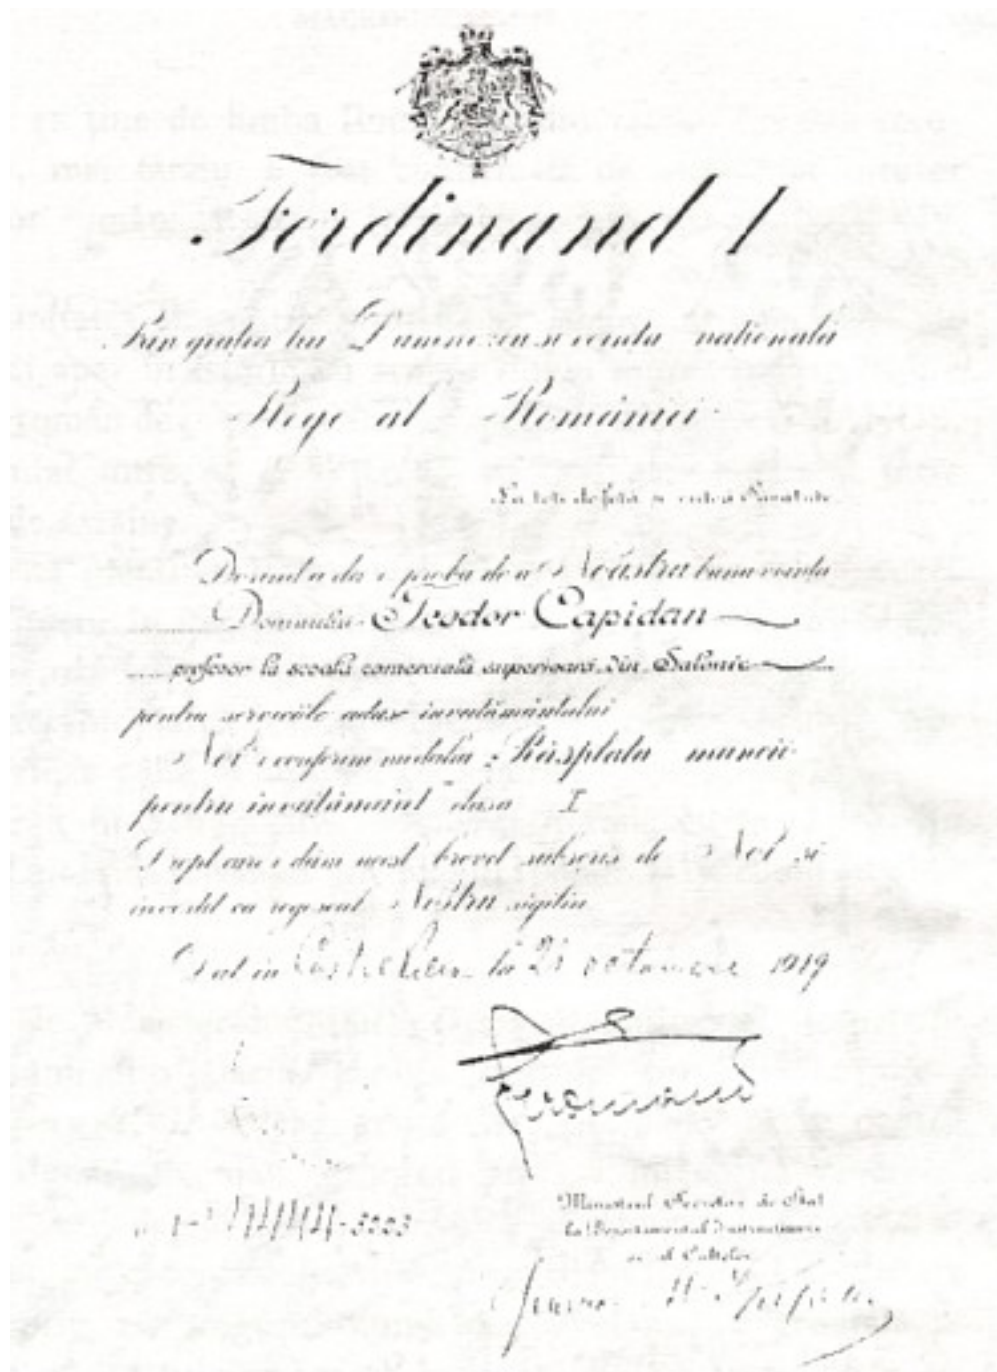 Ferdinand I
Prin grația lui Dumnezeu si voința națională
Rege al României
La toti de față și viitori Sanatate
Dorind a da o proba de a Noastra buna voința
Domnului Teodor Capidan
profesor la scoala comercială superioară din Salonic
pentru serviciile aduse invatământului
Noi i conferim medalia „Răsplata muncii
pentru invațămant" clasa I
Drept care i dăm acest brevet subscris de Noi si
investit cu regescul Nostru sigiliu
Dat in la 21 octomvrie 1919
Ferdinand
Ministrul Secretar de Stat
la Departamentul Instructiunei
si al Cultelor